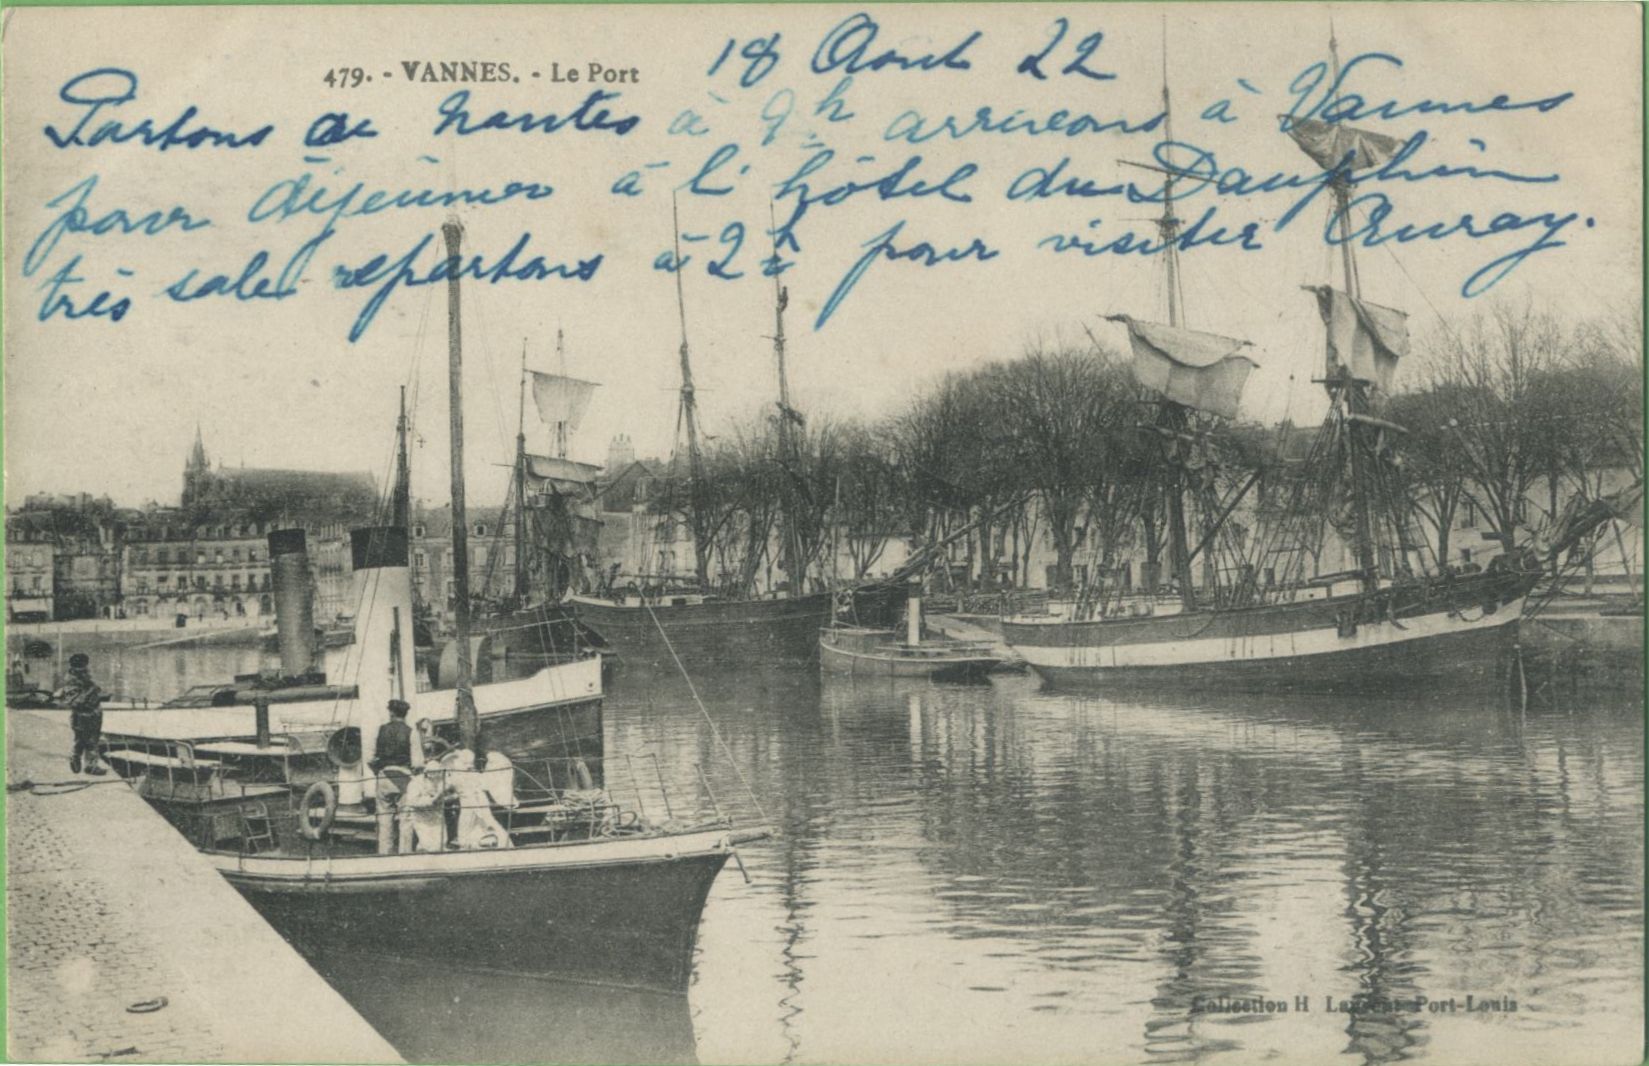 479. - VANNES. - Le Port
18 Aout 22
Partons de Nantes à 9h arrivons à Vannes
pour déjeûner à l'hôtel du Dauphin
très sale repartons à 2h pour visiter Auray.
Collection H Laurent Port-Louis